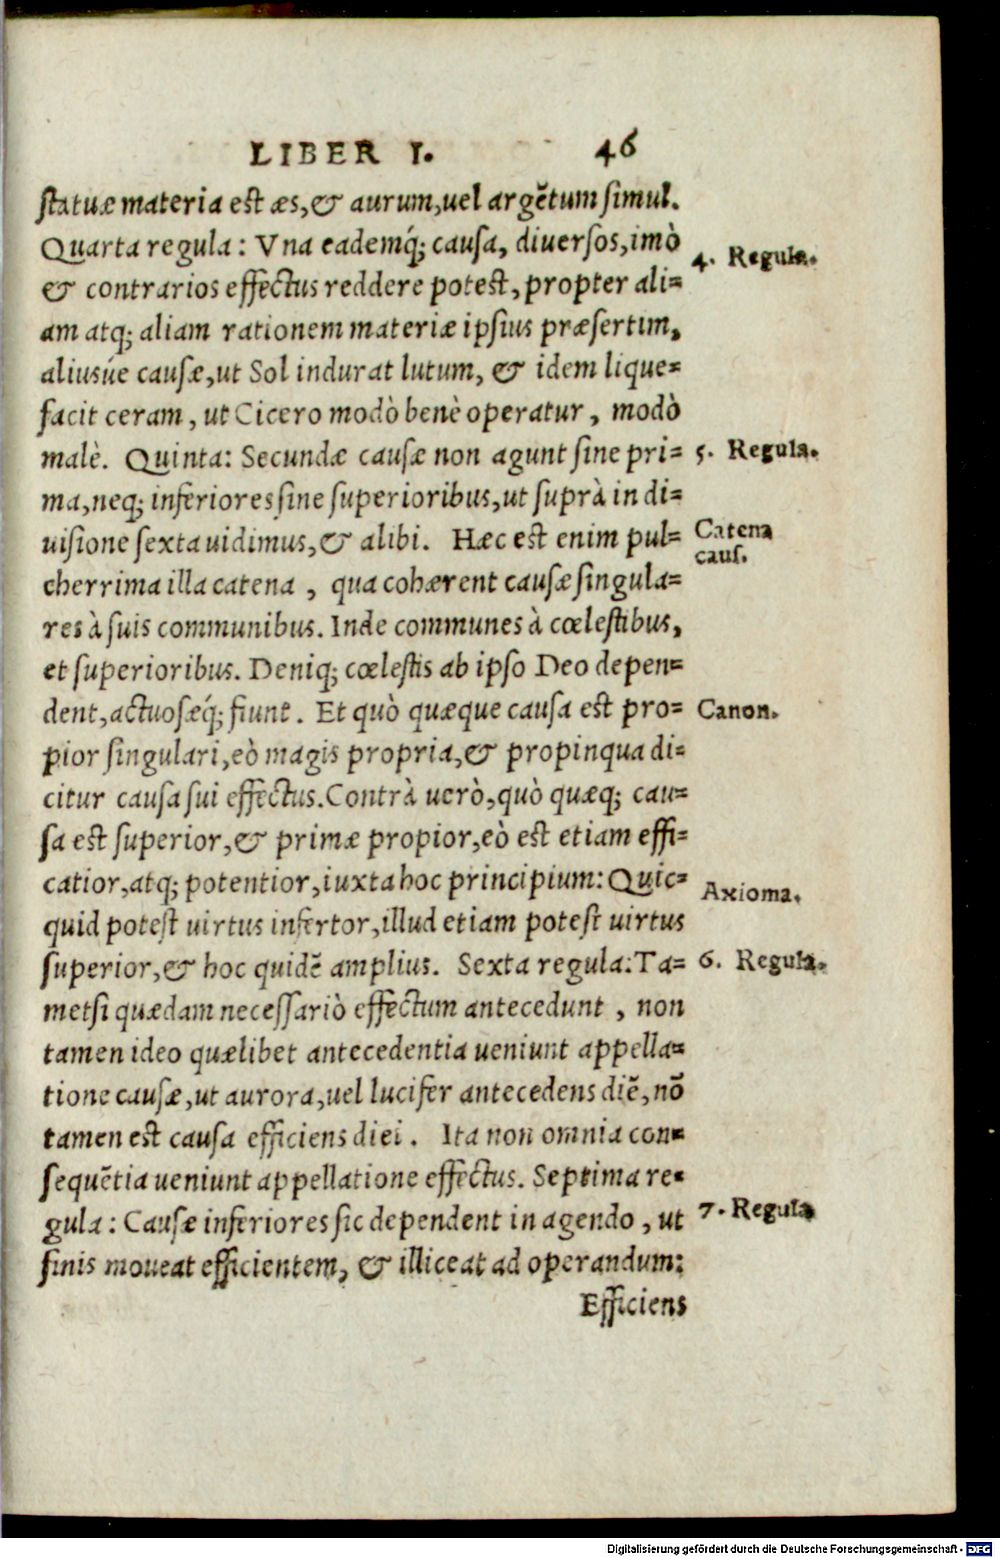 LIBER I. 46
statuæ materia est æs, & aurum, uel argẽtum simul.
Quarta regula: Vna eademq́; causa, diuersos, imò
4. Regula.
& contrarios effectus reddere potest, propter ali=
am atq; aliam rationem materiæ ipsius præsertim,
aliusúe causæ, ut Sol indurat lutum, & idem lique=
facit ceram, ut Cicero modò benè operatur, modò
malè. Quinta: Secundæ causæ non agunt sine pri=
5. Regula.
ma, neq; inferiores sine superioribus, ut suprà in di=
uisione sexta uidimus, & alibi. Hæc est enim pul=
Catena
caus.
cherrima illa catena, qua cohærent causæ singula=
res à suis communibus. Inde communes à cœlestibus,
et superioribus. Deniq; cœlestis ab ipso Deo depen=
dent, actuosæq́; fiunt. Et quò quæque causa est pro=
Canon.
pior singulari, eò magis propria, & propinqua di=
citur causa sui effectus. Contrà uerò, quò quæq; cau=
sa est superior, & primæ propior, eò est etiam effi=
catior, atq; potentior, iuxta hoc principium: Quic=
Axioma.
quid potest uirtus infertor, illud etiam potest uirtus
superior, & hoc quidẽ amplius. Sexta regula: Ta=
6. Regula.
metsi quædam necessariò effectum antecedunt, non
tamen ideo quælibet antecedentia ueniunt appella=
tione causæ, ut aurora, uel lucifer antecedens diẽ, nõ
tamen est causa efficiens diei. Ita non omnia con=
sequẽtia ueniunt appellatione effectus. Septima re=
gula: Causæ inferiores sic dependent in agendo, ut
7. Regula
finis moueat efficientem, & illiceat ad operandum:
Efficiens
Digitalisierung gefördert durch die Deutsche Forschungsgemeinschaft - DFG